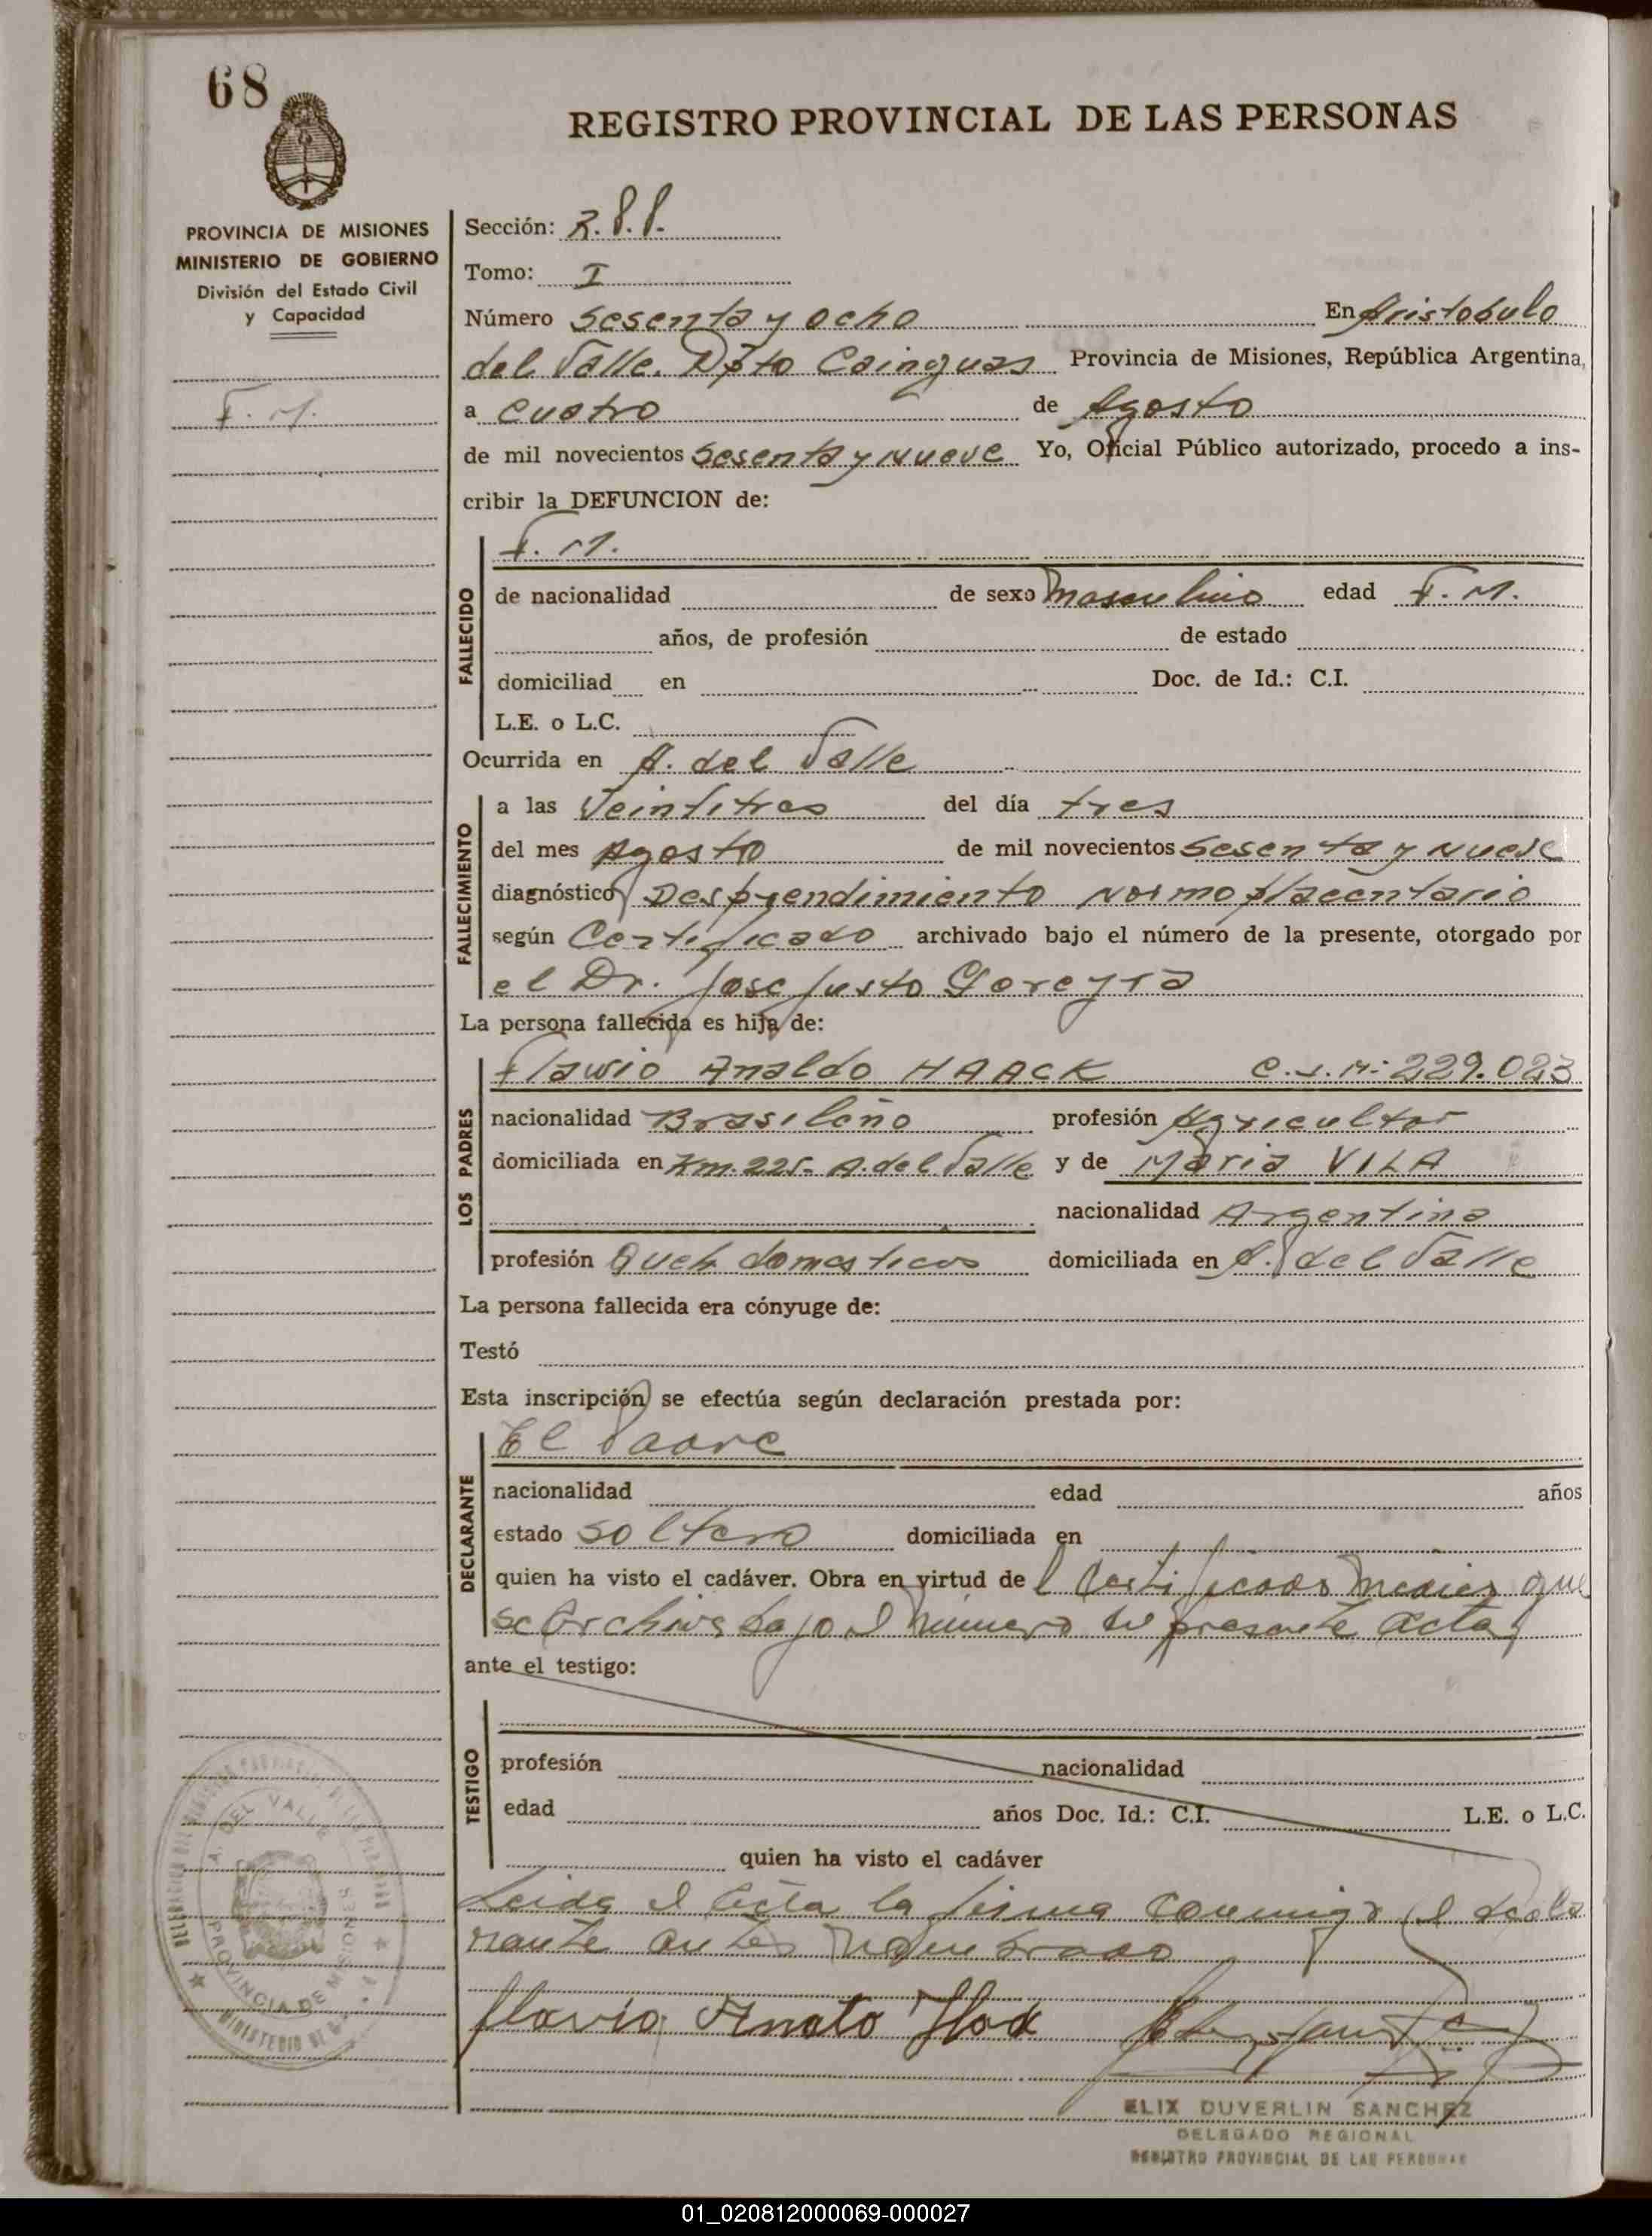 68
REGISTRO PROVINCIAL DE LAS PERSONAS
PROVINCIA DE MISIONES
MINISTERIO DE GOBIERNO
División del Estado Civil
y Capacidad
F. M.
Sección:
Tomo: I
Número Sesenta y ocho En Aristobulo
del Valle. Dpto Cainguas Provincia de Misiones, República Argentina,
a cuatro de Agosto
de mil novecientos Sesenta y Nueve Yo, Oficial Público autorizado, procedo a ins-
cribir la DEFUNCION de:
FALLECIDO
F. M.
de nacionalidad de sexo Masculino edad F. M.
años, de profesión de estado
domiciliad en Doc. de Id.: C.I.
L.E. o L.C.
Ocurrida en A. del Valle
FALLECIMIENTO
a las Veintitres del día tres
del mes Agosto de mil novecientos Sesenta y Nueve
diagnóstico Desprendimiento Normoplacentario
según Certificado archivado bajo el número de la presente, otorgado por
el Dr. Jose Justo Gereyra
La persona fallecida es hija de:
LOS PADRES
Flavio Analdo HAACK C.I.M: 229.023
nacionalidad Brasileño profesión Agricultor
domiciliada en Km. 225. A. del Valle y de Maria VILA
nacionalidad Argentina
profesión Queh domesticos domiciliada en A. del Valle
La persona fallecida era cónyuge de:
Testó
Esta inscripción se efectúa según declaración prestada por:
DECLARANTE
El Padre
nacionalidad edad años
estado soltero domiciliada en
quien ha visto el cadáver. Obra en virtud de l Certificado Medico que
se Archiva bajo el número de presente acta
ante el testigo:
TESTIGO
profesión nacionalidad
edad años Doc. Id.: C.I. L.E. o L.C.
quien ha visto el cadáver
Leida el Acta la firma conmigo el decla
rante antes nombrado
flavio Anato Hak
A. DEL VALLE
PROVINCIA DE MISIONES
ELIX DUVERLIN SANCHEZ
DELEGADO REGIONAL
REGISTRO PROVINCIAL DE LAS PERSONAS
01_020812000069-000027